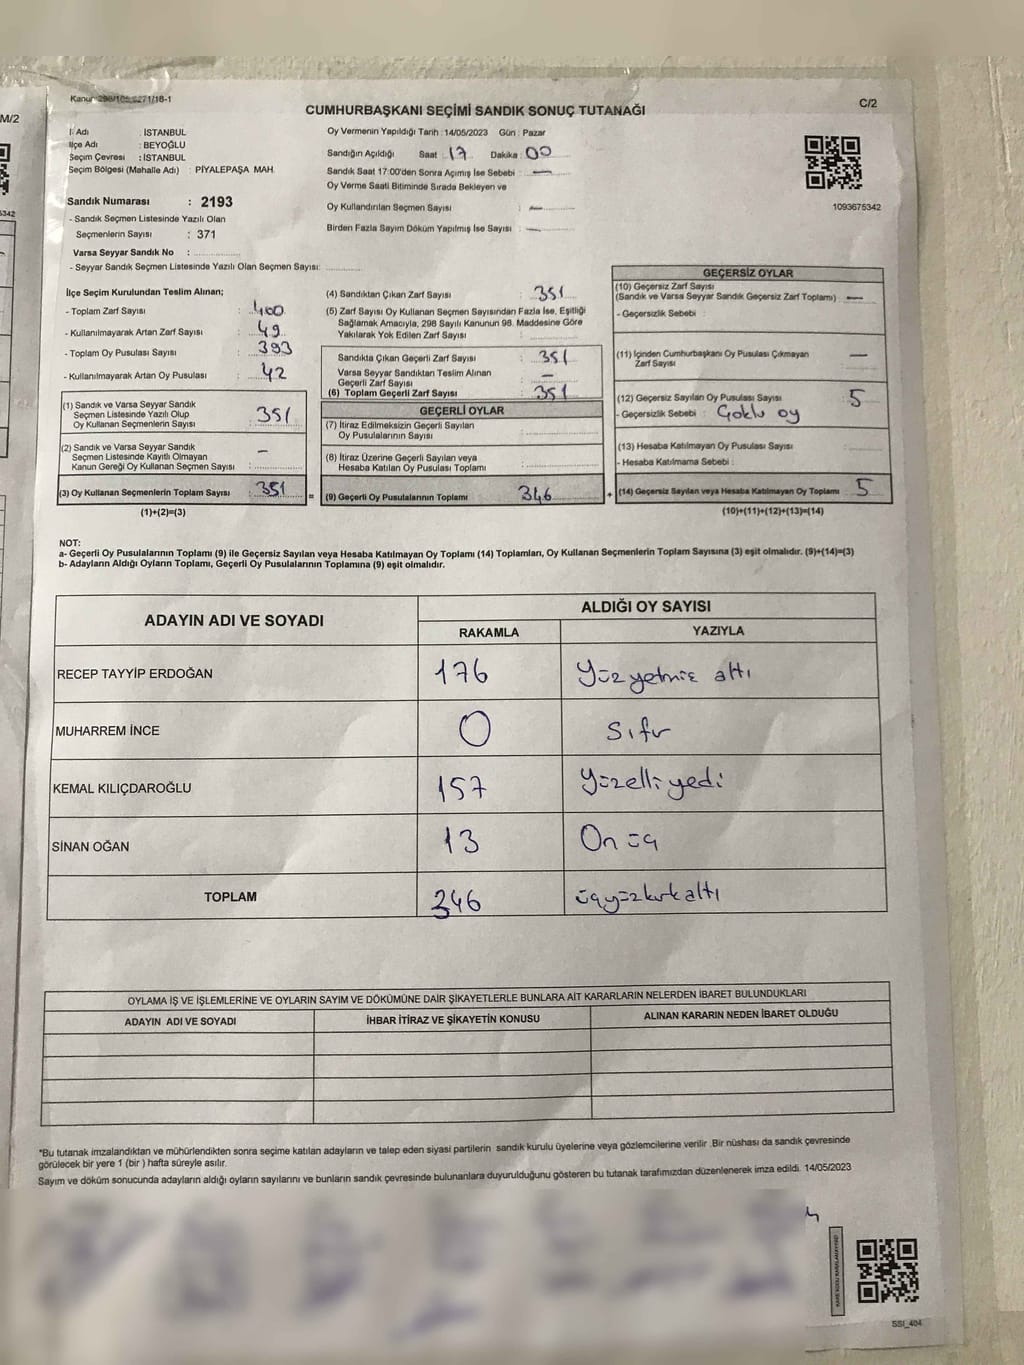 M/2
5342
Kanun 298/105,5271/18-1
CUMHURBAŞKANI SEÇİMİ SANDIK SONUÇ TUTANAĞI
C/2
İl Adı : İSTANBUL
İlçe Adı : BEYOĞLU
Seçim Çevresi : İSTANBUL
Seçim Bölgesi (Mahalle Adı) : PİYALEPAŞA MAH.
Oy Vermenin Yapıldığı Tarih : 14/05/2023 Gün : Pazar
Sandığın Açıldığı Saat : 17 Dakika : 00
Sandık Saat 17:00'den Sonra Açımış İse Sebebi : —
Oy Verme Saati Bitiminde Sırada Bekleyen ve
Oy Kullandırılan Seçmen Sayısı : —
Birden Fazla Sayım Döküm Yapılmış İse Sayısı : —
1093675342
Sandık Numarası : 2193
- Sandık Seçmen Listesinde Yazılı Olan
Seçmenlerin Sayısı : 371
Varsa Seyyar Sandık No :
- Seyyar Sandık Seçmen Listesinde Yazılı Olan Seçmen Sayısı:
İlçe Seçim Kurulundan Teslim Alınan;
- Toplam Zarf Sayısı : 400
- Kullanılmayarak Artan Zarf Sayısı : 49
- Toplam Oy Pusulası Sayısı : 393
- Kullanılmayarak Artan Oy Pusulası : 42
(1) Sandık ve Varsa Seyyar Sandık
Seçmen Listesinde Yazılı Olup
Oy Kullanan Seçmenlerin Sayısı : 351
(2) Sandık ve Varsa Seyyar Sandık
Seçmen Listesinde Kayıtlı Olmayan
Kanun Gereği Oy Kullanan Seçmen Sayısı : —
(3) Oy Kullanan Seçmenlerin Toplam Sayısı : 351
(1)+(2)=(3)
(4) Sandıktan Çıkan Zarf Sayısı : 351
(5) Zarf Sayısı Oy Kullanan Seçmen Sayısından Fazla İse, Eşitliği
Sağlamak Amacıyla, 298 Sayılı Kanunun 98. Maddesine Göre
Yakılarak Yok Edilen Zarf Sayısı :
Sandıkta Çıkan Geçerli Zarf Sayısı : 351
Varsa Seyyar Sandıktan Teslim Alınan
Geçerli Zarf Sayısı : —
(6) Toplam Geçerli Zarf Sayısı : 351
GEÇERLİ OYLAR
(7) İtiraz Edilmeksizin Geçerli Sayılan
Oy Pusulalarının Sayısı :
(8) İtiraz Üzerine Geçerli Sayılan veya
Hesaba Katılan Oy Pusulası Toplamı :
= (9) Geçerli Oy Pusulalarının Toplamı 346 +
GEÇERSİZ OYLAR
(10) Geçersiz Zarf Sayısı
(Sandık ve Varsa Seyyar Sandık Geçersiz Zarf Toplamı) : —
- Geçersizlik Sebebi :
(11) İçinden Cumhurbaşkanı Oy Pusulası Çıkmayan
Zarf Sayısı : —
(12) Geçersiz Sayılan Oy Pusulası Sayısı : 5
- Geçersizlik Sebebi : Çoklu oy
(13) Hesaba Katılmayan Oy Pusulası Sayısı :
- Hesaba Katılmama Sebebi :
(14) Geçersiz Sayılan veya Hesaba Katılmayan Oy Toplamı : 5
(10)+(11)+(12)+(13)=(14)
NOT:
a- Geçerli Oy Pusulalarının Toplamı (9) ile Geçersiz Sayılan veya Hesaba Katılmayan Oy Toplamı (14) Toplamları, Oy Kullanan Seçmenlerin Toplam Sayısına (3) eşit olmalıdır. (9)+(14)=(3)
b- Adayların Aldığı Oyların Toplamı, Geçerli Oy Pusulalarının Toplamına (9) eşit olmalıdır.
ADAYIN ADI VE SOYADI
ALDIĞI OY SAYISI
RAKAMLA YAZIYLA
RECEP TAYYİP ERDOĞAN 176 Yüzyetmiş altı
MUHARREM İNCE 0 Sıfır
KEMAL KILIÇDAROĞLU 157 Yüzelli yedi
SİNAN OĞAN 13 On üç
TOPLAM 346 üçyüzkırkaltı
OYLAMA İŞ VE İŞLEMLERİNE VE OYLARIN SAYIM VE DÖKÜMÜNE DAİR ŞİKAYETLERLE BUNLARA AİT KARARLARIN NELERDEN İBARET BULUNDUKLARI
ADAYIN ADI VE SOYADI İHBAR İTİRAZ VE ŞİKAYETİN KONUSU ALINAN KARARIN NEDEN İBARET OLDUĞU
*Bu tutanak imzalandıktan ve mühürlendikten sonra seçime katılan adayların ve talep eden siyasi partilerin sandık kurulu üyelerine veya gözlemcilerine verilir .Bir nüshası da sandık çevresinde
görülecek bir yere 1 (bir ) hafta süreyle asılır.
Sayım ve döküm sonucunda adayların aldığı oyların sayılarını ve bunların sandık çevresinde bulunanlara duyurulduğunu gösteren bu tutanak tarafımızdan düzenlenerek imza edildi. 14/05/2023
SSI_404